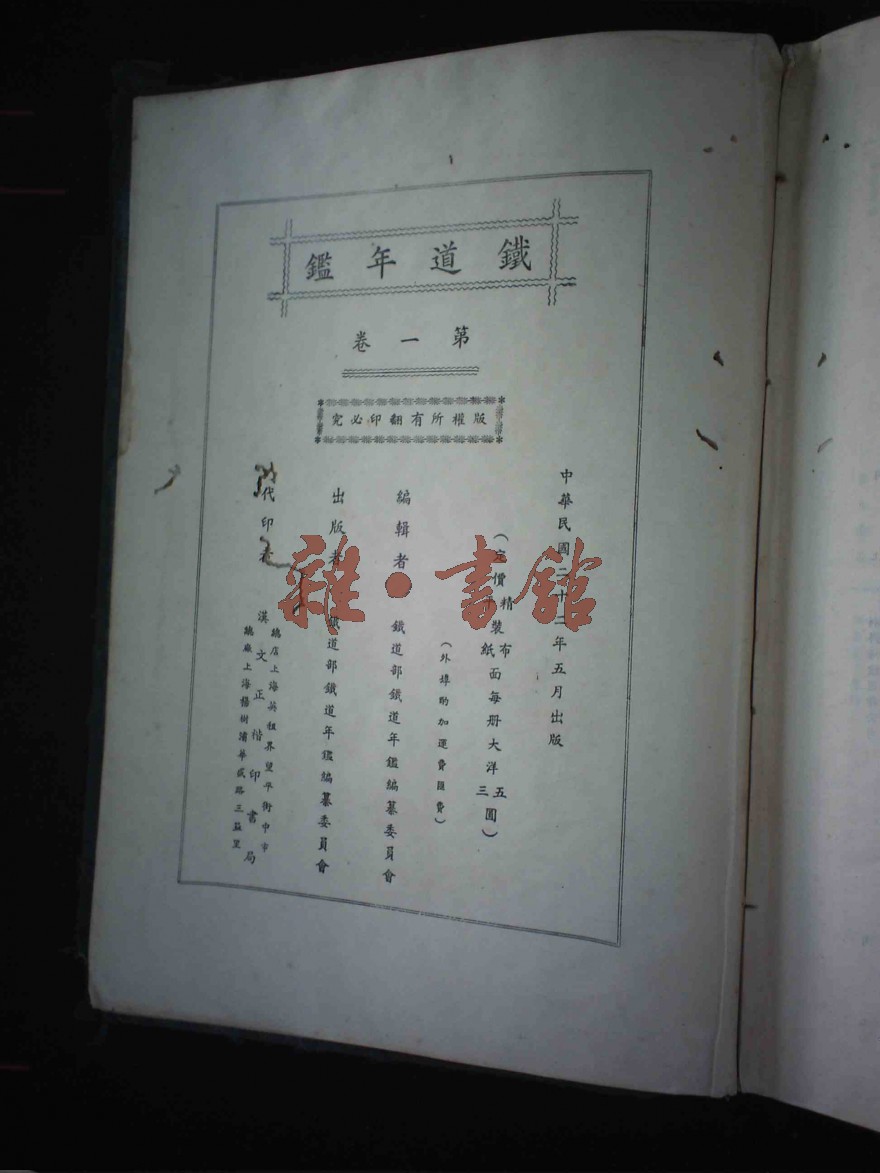 鐵道年鑑
第一卷
版權所有翻印必究
中華民國二十二年五月出版
(定價精裝布面每册大洋五圓)
紙三
(外埠酌加運費匯費)
編輯者 鐵道部鐵道年鑑編纂委員會
出版者 鐵道部鐵道年鑑編纂委員會
代印者 漢文正楷印書局
總店上海英租界望平街中市
總廠上海楊樹浦華盛路三益里
雜·書館